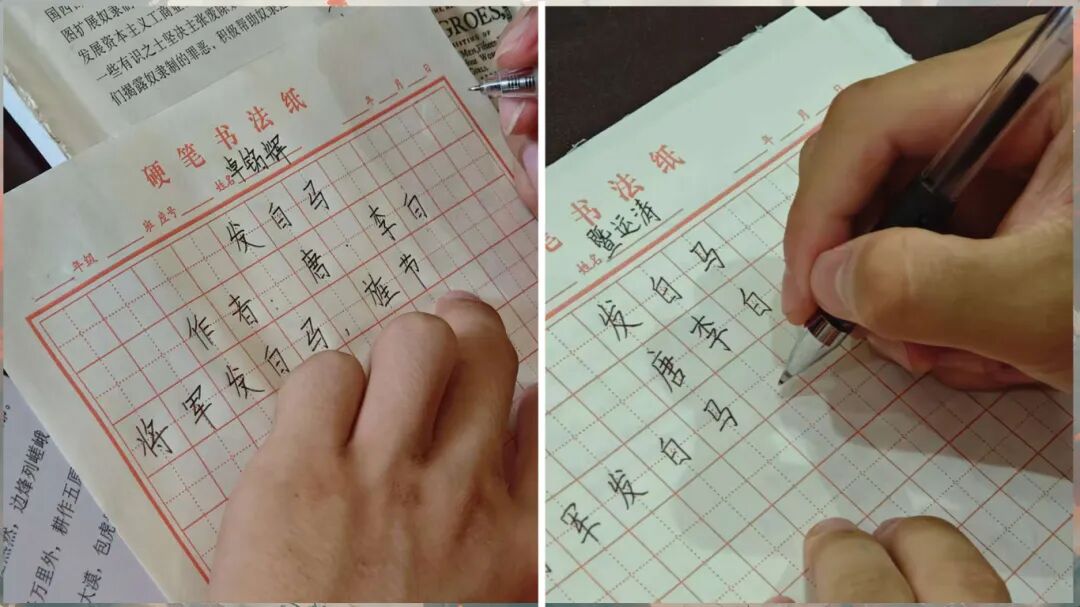 发展资本主义工商业
一些有识之士坚决主张废除
们揭露奴隶制的罪恶，积极帮助奴隶
GROES,
硬笔书法纸
年 月 日
年级 班 座号 姓名 卓铭辉
发白马
作者：唐·李白
将军发白马，旌节
边烽列嵯峨
万里外，耕作五原
大漠，包虎
书法纸
年 月 日
姓名 暨运涛
发白马
唐 李白
军发白马